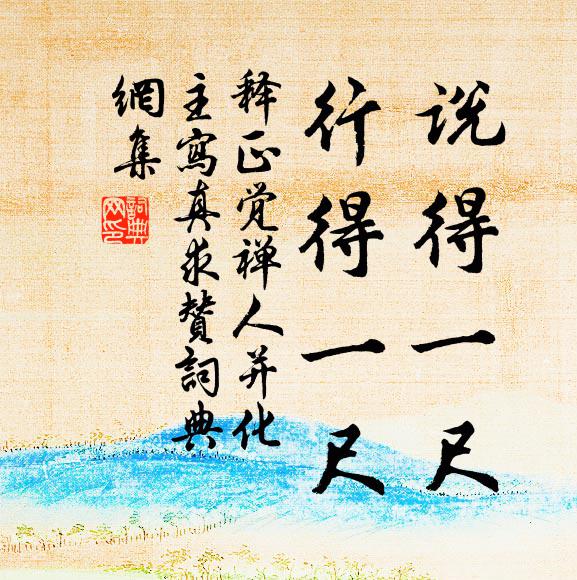 说得一尺
行得一尺
释正觉禅人并化
主寫真求赞詞典
網集
詞典網印